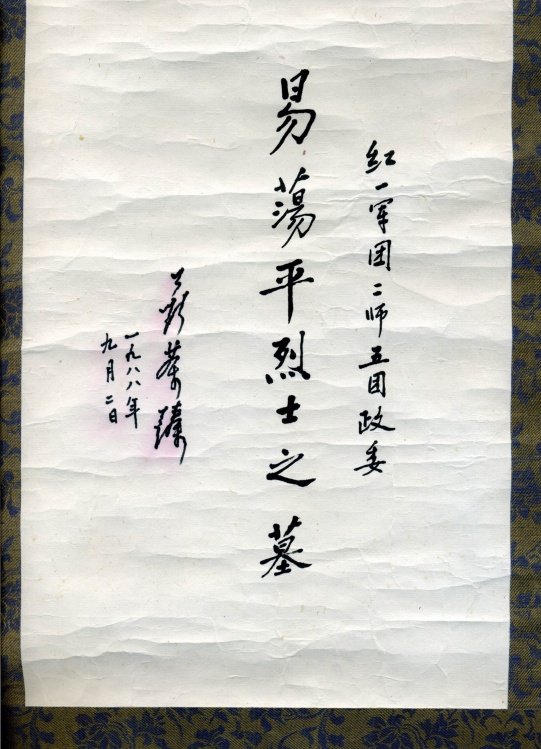 红一军团二师五团政委
易蕩平烈士之墓
聂荣臻
一九八八年
九月二日